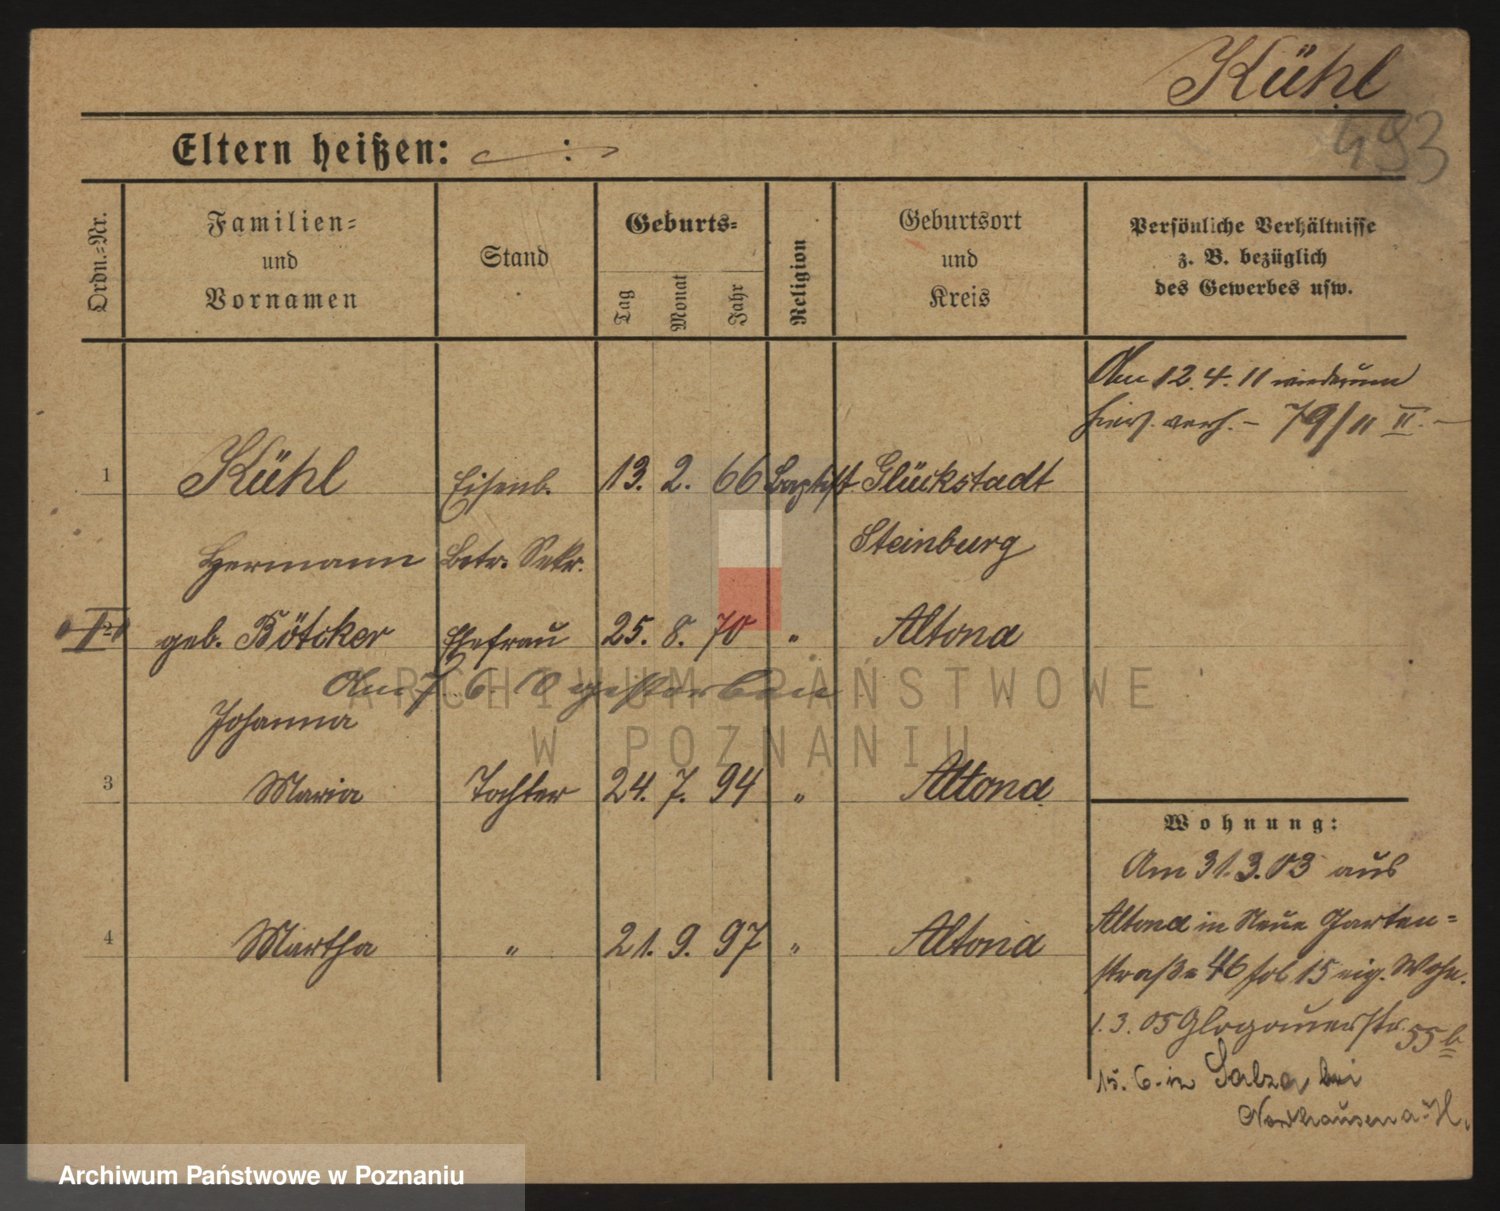 Kühl
493
Eltern heißen: :
Ordn.-Nr.
Familien-
und
Vornamen
Stand
Geburts-
Tag
Monat
Jahr
Religion
Geburtsort
und
Kreis
Persönliche Verhältnisse
z. B. bezüglich
des Gewerbes usw.
Am 12.4.11 wiederum
hier verh. – 79/11 II. –
1 Kühl Eisenb. 13. 2. 66 Baptist Glückstadt
Hermann Betr. Sekr. Steinburg
2 geb. Bötcker Ehefrau 25. 8. 70 " Altona
Am 7. 6. gestorben
Johanna
3 Maria Tochter 24. 7. 94 " Altona
4 Martha " 21. 9. 97 " Altona
Wohnung:
Am 31.3.03 aus
Altona in Neue Garten=
straße 46 15 eig. Wohn.
1.3.05 Glogauerstr. 55b
15. 6. in Salza bei
Nordhausen a. H.
ARCHIWUM PAŃSTWOWE
W POZNANIU
Archiwum Państwowe w Poznaniu